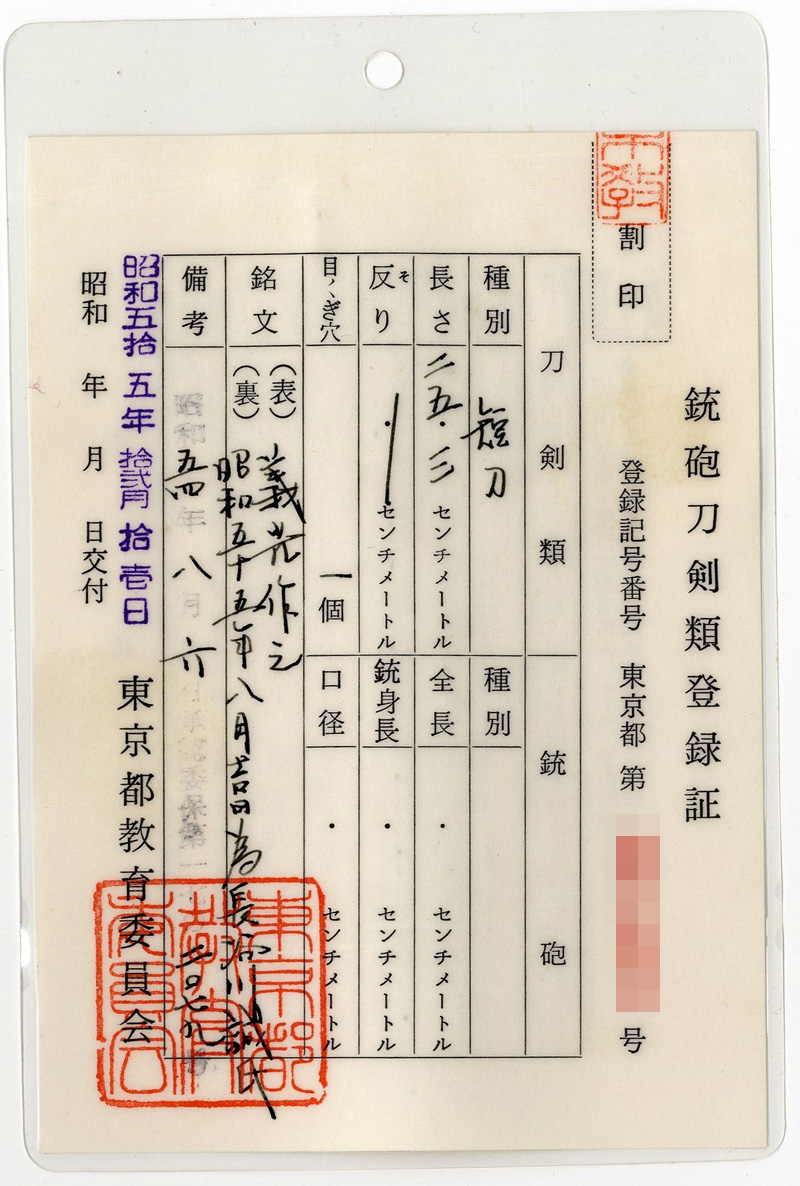 銃砲刀剣類登録証
登録記号番号 東京都 第 号
割印
刀剣類
銃砲
種別 短刀
種別
長さ 二五・三 センチメートル
全長 ・ センチメートル
反り そ ・ センチメートル
銃身長 ・ センチメートル
目くぎ穴 一個
口径 ・ センチメートル
銘文 (表) 義光作之
(裏) 昭和五十五年八月吉日為長 川誠氏
備考 昭和五四年八月六日
昭和五拾五年拾弐月拾壱日
昭和 年 月 日交付
東京都教育委員会
東京都教育委員会